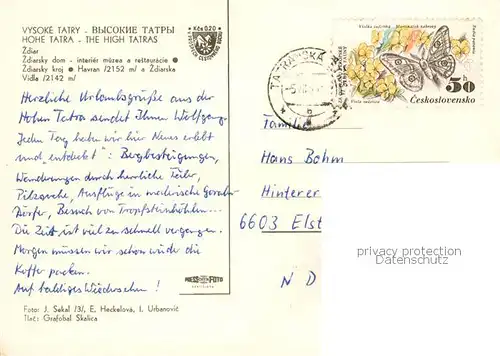 VYSOKÉ TATRY - ВЫСОКИЕ ТАТРЫ
HOHE TATRA - THE HIGH TATRAS
Ždiar
Ždiarsky dom - interiér múzea a reštaurácie
Ždiarsky kroj ● Havran /2152 m a Ždiarska
Vidla /2142 m/
Kčs 0,20
Herzliche Urlaubsgrüße aus der
Hohen Tatra sendet Ihnen Wolfgang.
Jeden Tag haben wir hier Neues erlebt
und "entdeckt": Bergbesteigungen,
Wanderungen durch herrliche Täler,
Pilzsuche, Ausflüge in malerische Goralen-
dörfer, Besuch von Tropfsteinhöhlen...
Die Zeit ist viel zu schnell vergangen.
Morgen müssen wir schon wieder die
Koffer packen.
Auf baldiges Wiedersehen!
Foto: J. Sakal /3/, E. Heckelová, I. Urbanovič
Tlač: Grafobal Skalica
PRESSFOTO
TATRANSKÁ
50 h
Československo
Familie
Hans Böhm
Hinterer
6603 Elst
privacy protection
service
N D